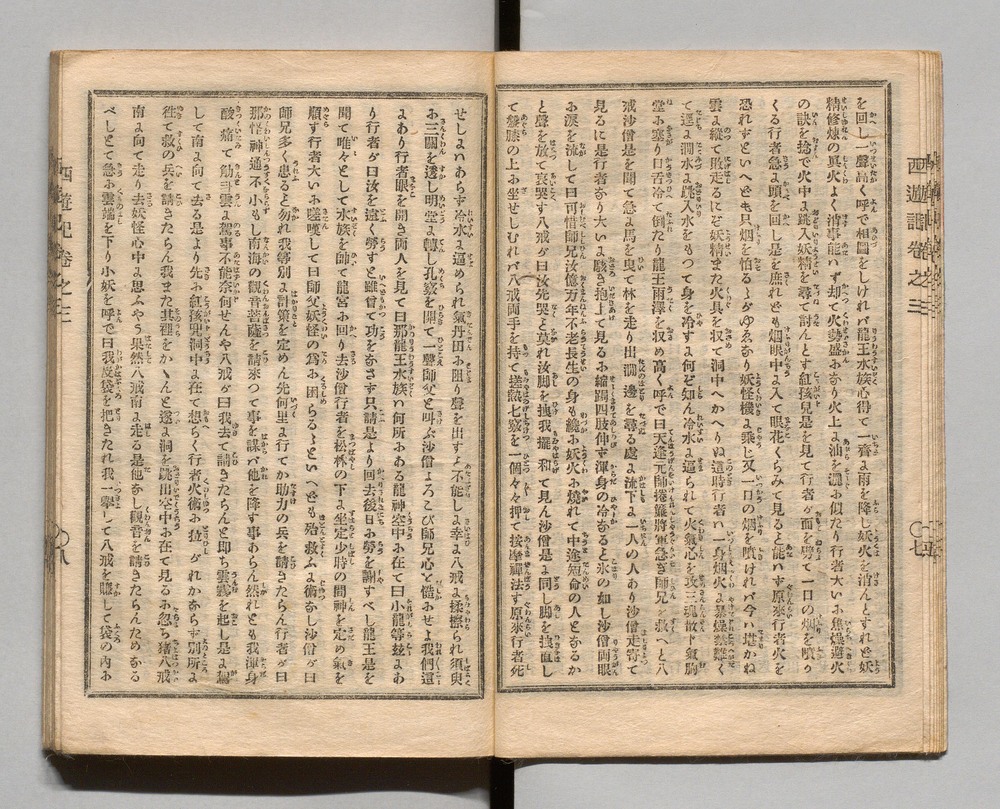 を回し一聲高く呼で相圖をしけれバ龍王水族心得て一齊ょ雨を降し妖火を消んとすれ𪜈妖
精修煉の眞火よく消事能ハず却て火勢盛ふなり火上ょ油を澱ふ似たり行者大いふ焦燥避火
の訣を捻で火中ょ跳入妖精を尋て討んとす紅孩兒是を見て行者が面を劈て一口の烟を噴り
くる行者急ょ頭を回し是を庶れ𪜈も烟眼中ょ入て眼花くらみて見ると能ハず原來行者火を
恐れずといへ𪜈も只烟を怕るゝがゆゑなり妖怪機ょ乘じ又一口の烟を噴けれバ今ハ堪かね
雲ょ縱て敗走るにど妖精また火具を収て洞中へかへりぬ這時行者ハ一身烟火ょ暴燥禁難く
て逕ょ澗水ょ跳入水をもつて身を冷すょ何ど知ん冷水ょ逼られて火氣心を攻三魂散下氣胸
堂ふ塞り口舌冷へて倒たり龍王雨澤を収め高く呼で曰天蓬元帥捲簾將軍急ぎ師兄を救へと八
戒沙僧是を聞て急ょ馬を曳て林を走り出澗邊を尋る處ょ流下ょ一人の人あり沙僧走寄て
見るに是行者なり大いょ駭き抱上て見るふ縮跼四肢伸ず渾身の冷なると氷の如し沙僧両眼
ふ涙を流して曰可惜師兄汝億万年不老長生の身も纔ふ妖火ふ燒れて中途短命の人となるか
と聲を放て哀哭す八戒が曰汝先哭と莫れ汝脚を拽我擺和て見ん沙僧是ょ同し脚を拽直し
て盤膝の上ふ坐せしむれバ八戒両手を持て搓熱七竅を一個々々押て按摩禪法す原來行者死
せしょハあらず冷水ょ逼められ氣丹田ふ阻り聲を出すょ不能しょ幸ょ八戒ょ揉擦られ須臾
ふ三關を透し明堂ょ轉し孔竅を開て一聲師父と叫ぶ沙僧よろこび師兄心と慥ふせよ我們這
よあり行者眼を開き両人を見て曰那龍王水族ハ何所ふある龍神空中ふ在て曰小龍等茲ょあ
り行者が曰汝を遠く勞すと雖曾て功をなさず只請是より回去後日ふ勞を謝すべし龍王是を
聞て唯々として水族を師て龍宮ふ回り去沙僧行者を松林の下ょ坐定少時の間神を定め氣を
順す行者大いふ嗟嘆して曰師父妖怪の爲ふ困らるゝといへ𪜈も殆救ふょ術なし沙僧が曰
師兄多く患ると勿れ我等別ょ計策を定めん先何里ょ行てか助力の兵を請きたらん行者が曰
那怪神通不小もし南海の觀音菩薩を請來つて事を謀バ他を降す事あらん然れ𪜈も我渾身
酸痛て筋斗雲ょ駕事不能奈何せんや八戒が曰我去て請きたらんと即ち雲霧を起し是ょ駕
して南ょ向て去る是より先ふ紅孩聖洞中ょ在て想らく行者火術ふ敗がれかならず別所ょ
徃て救の兵を請きたらん我また其裡をかゝんと遂ょ洞を跳出空中ふ在て見るふ忽ち猪八戒
南ょ向て走り去妖怪心中ょ思ふやう果然八戒南ょ走る是他なし觀音を請きたらんためなる
べしとて急ふ雲端を下り小妖を呼で曰我皮袋を把きたれ我一擧して八戒を賺して袋の内ふ
西遊記卷之三
〇七
西遊記卷之三
〇八